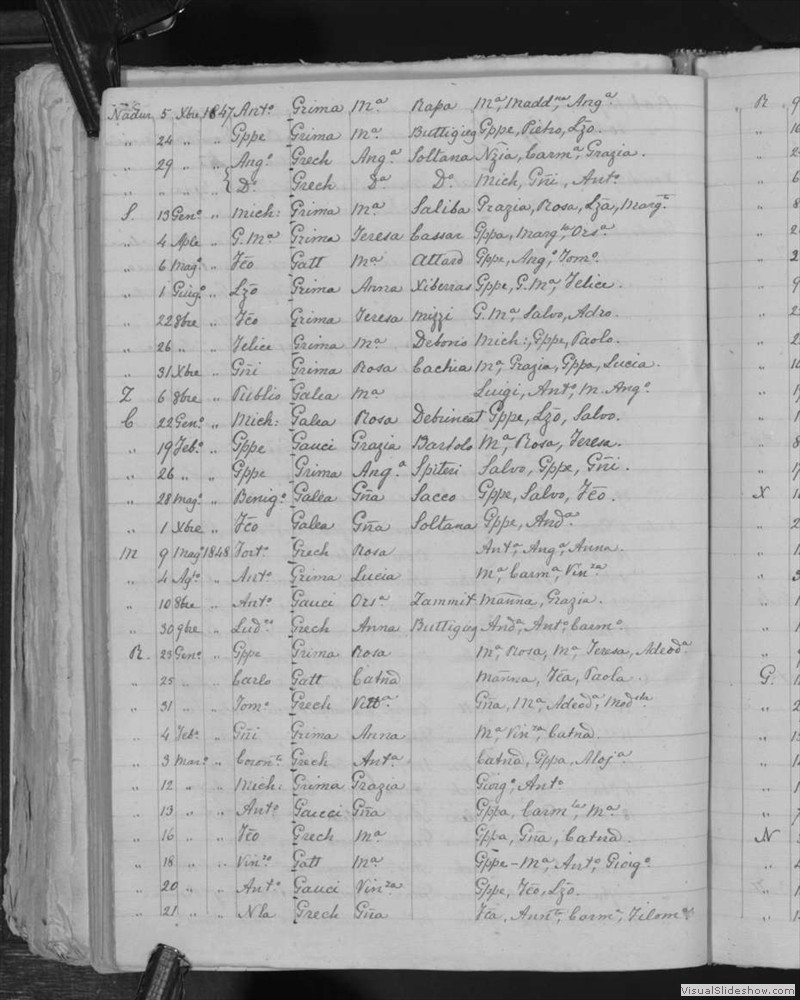 Nadur 5 Xbre 1847 Anto Grima Ma Rapa Ma, Maddna, Anga
" 24 " " Gppe Grima Ma Buttigieg Gppe, Pietro, Lzo.
" 29 " " Ango Grech Anga Soltana Nzia, Carma, Grazia.
" " " " Do Grech Da Do Mich, Gñi, Anto
S 13 Geno " Mich: Grima Ma Saliba Grazia, Rosa, Lza, Marga
" 4 Aple " G. Ma Grima Teresa Cassar Gppa, Margta, Orsa
" 6 Mago " Fco Gatt Ma Attard Gppe, Ango, Tomo.
" 1 Giugo " Lzo Grima Anna Xiberras Gppe, G. Ma, Felice.
" 22 8bre " Fco Grima Teresa Mizzi G. Ma, Salvo, Adro.
" 26 " " Felice Grima Ma Debono Mich:, Gppe, Paolo.
" 31 Xbre " Gñi Grima Rosa Cachia Ma, Grazia, Gppa, Lucia.
Z 6 8bre " Publio Galea Ma Luigi, Anto, M. Ango.
C 22 Geno " Mich: Galea Rosa Debrincat Gppe, Lzo, Salvo.
" 19 Febo " Gppe Gauci Grazia Bartolo Ma, Rosa, Teresa.
" 26 " " Gppe Grima Anga Spiteri Salvo, Gppe, Gñi.
" 28 Mago " Benigo Galea Gña Sacco Gppe, Salvo, Fco.
" 1 Xbre " Fco Galea Gña Soltana Gppe, Anda
M 9 Mago 1848 Forto Grech Rosa Anta, Anga, Anna.
" 4 Agto " Anto Grima Lucia Ma, Carma, Vinza
" 10 8bre " Anto Gauci Orsa Zammit Marina, Grazia.
" 30 9bre " Grech Anna Buttigieg Anda, Anto, Carmo.
R. 23 Geno " Gppe Grima Rosa Ma, Rosa, Ma, Teresa, Adeoda
" 25 " " Carlo Gatt Catna Marina, Fca, Paola.
" 31 " " Tomo Grech Vitta Gña, Ma, Adeoda
" 4 Febo " Gñi Grima Anna Ma, Vinza, Catna.
" 3 Maro " Grech Anta Catna, Gppa, Aloja
" 12 " " Mich: Grima Grazia Giorgo, Anto
" 13 " " Anto Gauci Gña Gppa, Carmla, Ma
" 16 " " Fco Grech Ma Gppa, Gña, Catna.
" 18 " " Vinzo Gatt Ma Gppe-Ma, Anto, Giorgo.
" 20 " " Anto Gauci Vinza Gppe, Fco, Lzo.
" 21 " " Nla Grech Gña Fca, Annta, Carma,
R
X
G.
N
VisualSlideshow.com